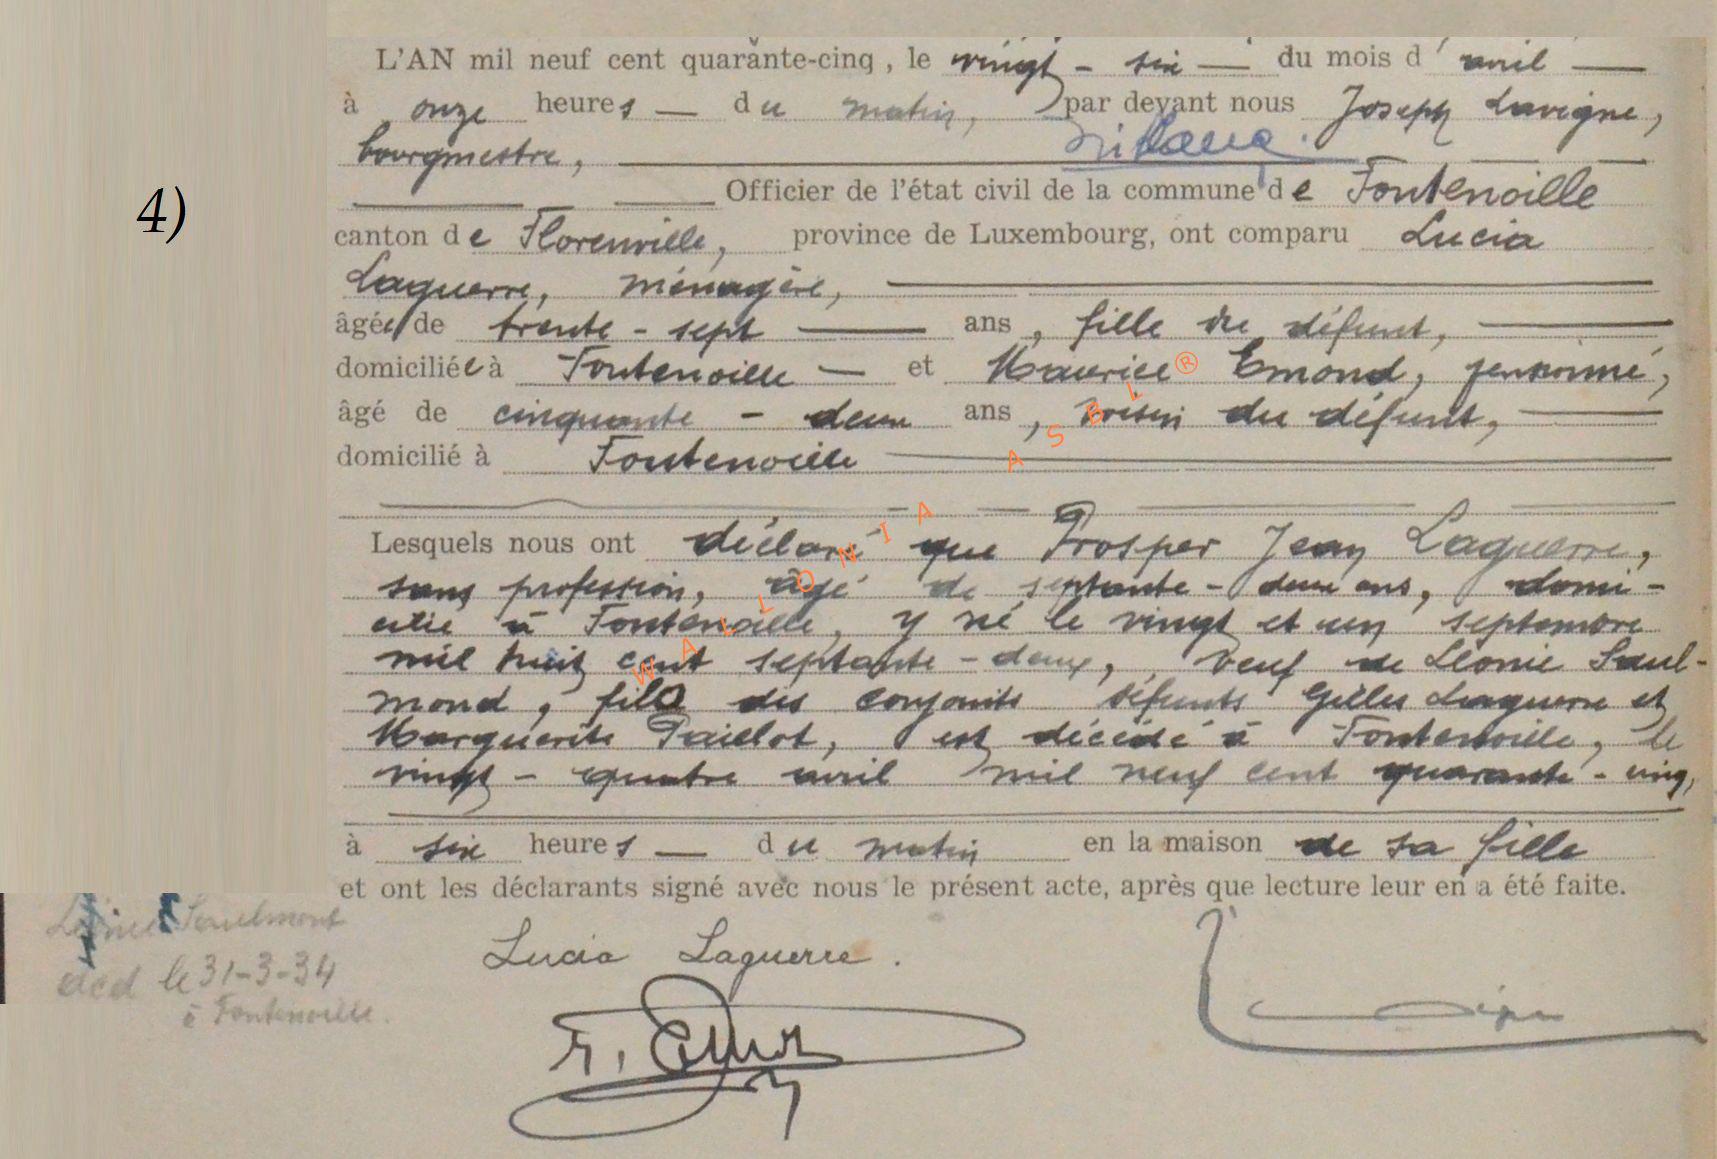 4)
L'AN mil neuf cent quarante-cinq, le vingt - six — du mois d'avril —
à onze heures — du matin, par devant nous Joseph Lavigne,
bourgmestre,
Officier de l'état civil de la commune de Fontenoille
canton de Florenville, province de Luxembourg, ont comparu Lucia
Laguerre, ménagère,
âgée de trente - sept — ans, fille du défunt,
domiciliée à Fontenoille — et Maurice Emond, pensionné,
âgé de cinquante - deux ans, voisin du défunt,
domicilié à Fontenoille
Lesquels nous ont déclaré que Prosper Jean Laguerre,
sans profession, âgé de septante - deux ans, domi-
cilié à Fontenoille, y né le vingt et un septembre
mil huit cent septante - deux, veuf de Léonie Saul-
mond, fils des conjoints défunts Gilles Laguerre et
Marguerite Paillot, est décédé à Fontenoille, le
vingt - quatre avril mil neuf cent quarante - cinq,
à six heures — du matin en la maison de sa fille
et ont les déclarants signé avec nous le présent acte, après que lecture leur en a été faite.
Saulmont
dcd le 31-3-34
à Fontenoille.
Lucia Laguerre.
WALLONIA ASBL®